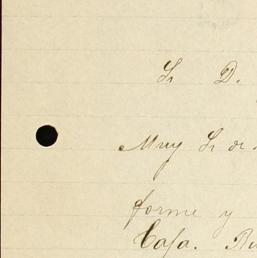 Sr D.
Muy Sr or
forme y
Casa.